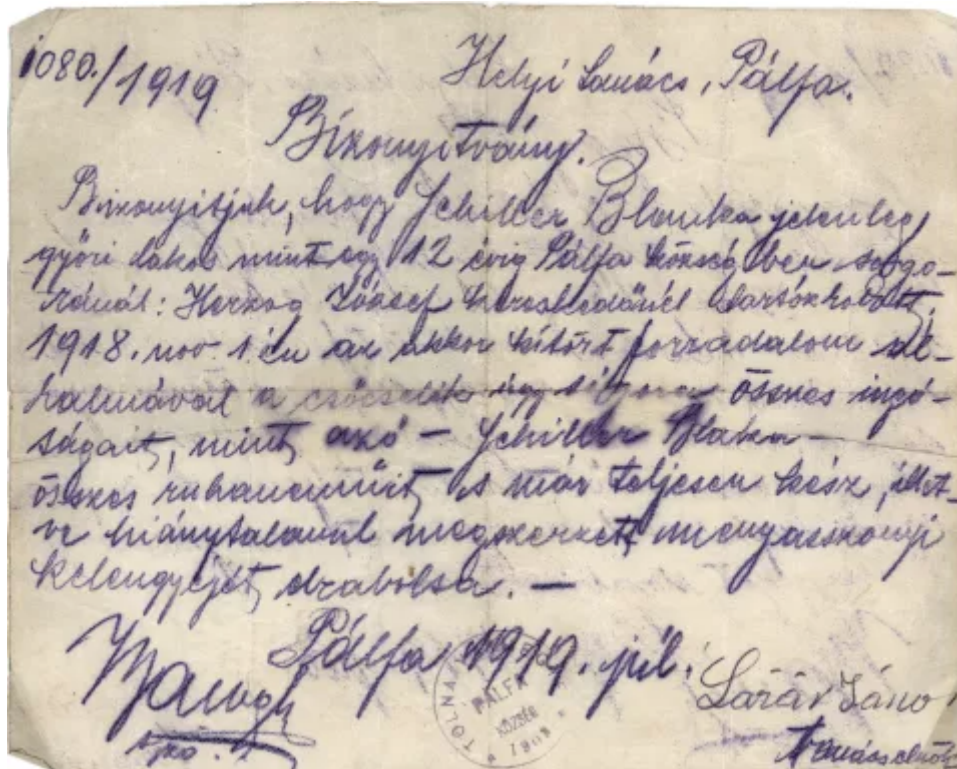 1080./1919
Helyi Tanács, Pálfa.
Bizonyitvány.
Bizonyitjuk, hogy Schiller Blanka jelenleg
győri lakos mint egy 12 évig Pálfa községben sógo-
ránál: Herzog József kereskedőnél tartózkodott,
1918. nov. 1 én az akkor kitört forradalom al-
kalmával a csőcselék úgy összes ingó-
ságait, mint azó - Schiller Blaka -
összes ruhaneműit, s már teljesen kész, illet-
ve hiánytalanul megszerzett menyasszonyi
kelengyéjét elrabolta. -
Pálfa 1919. júl.
Lázár Jáno
TOLNA
PÁLFA
KÖZSÉG
tanácselnök